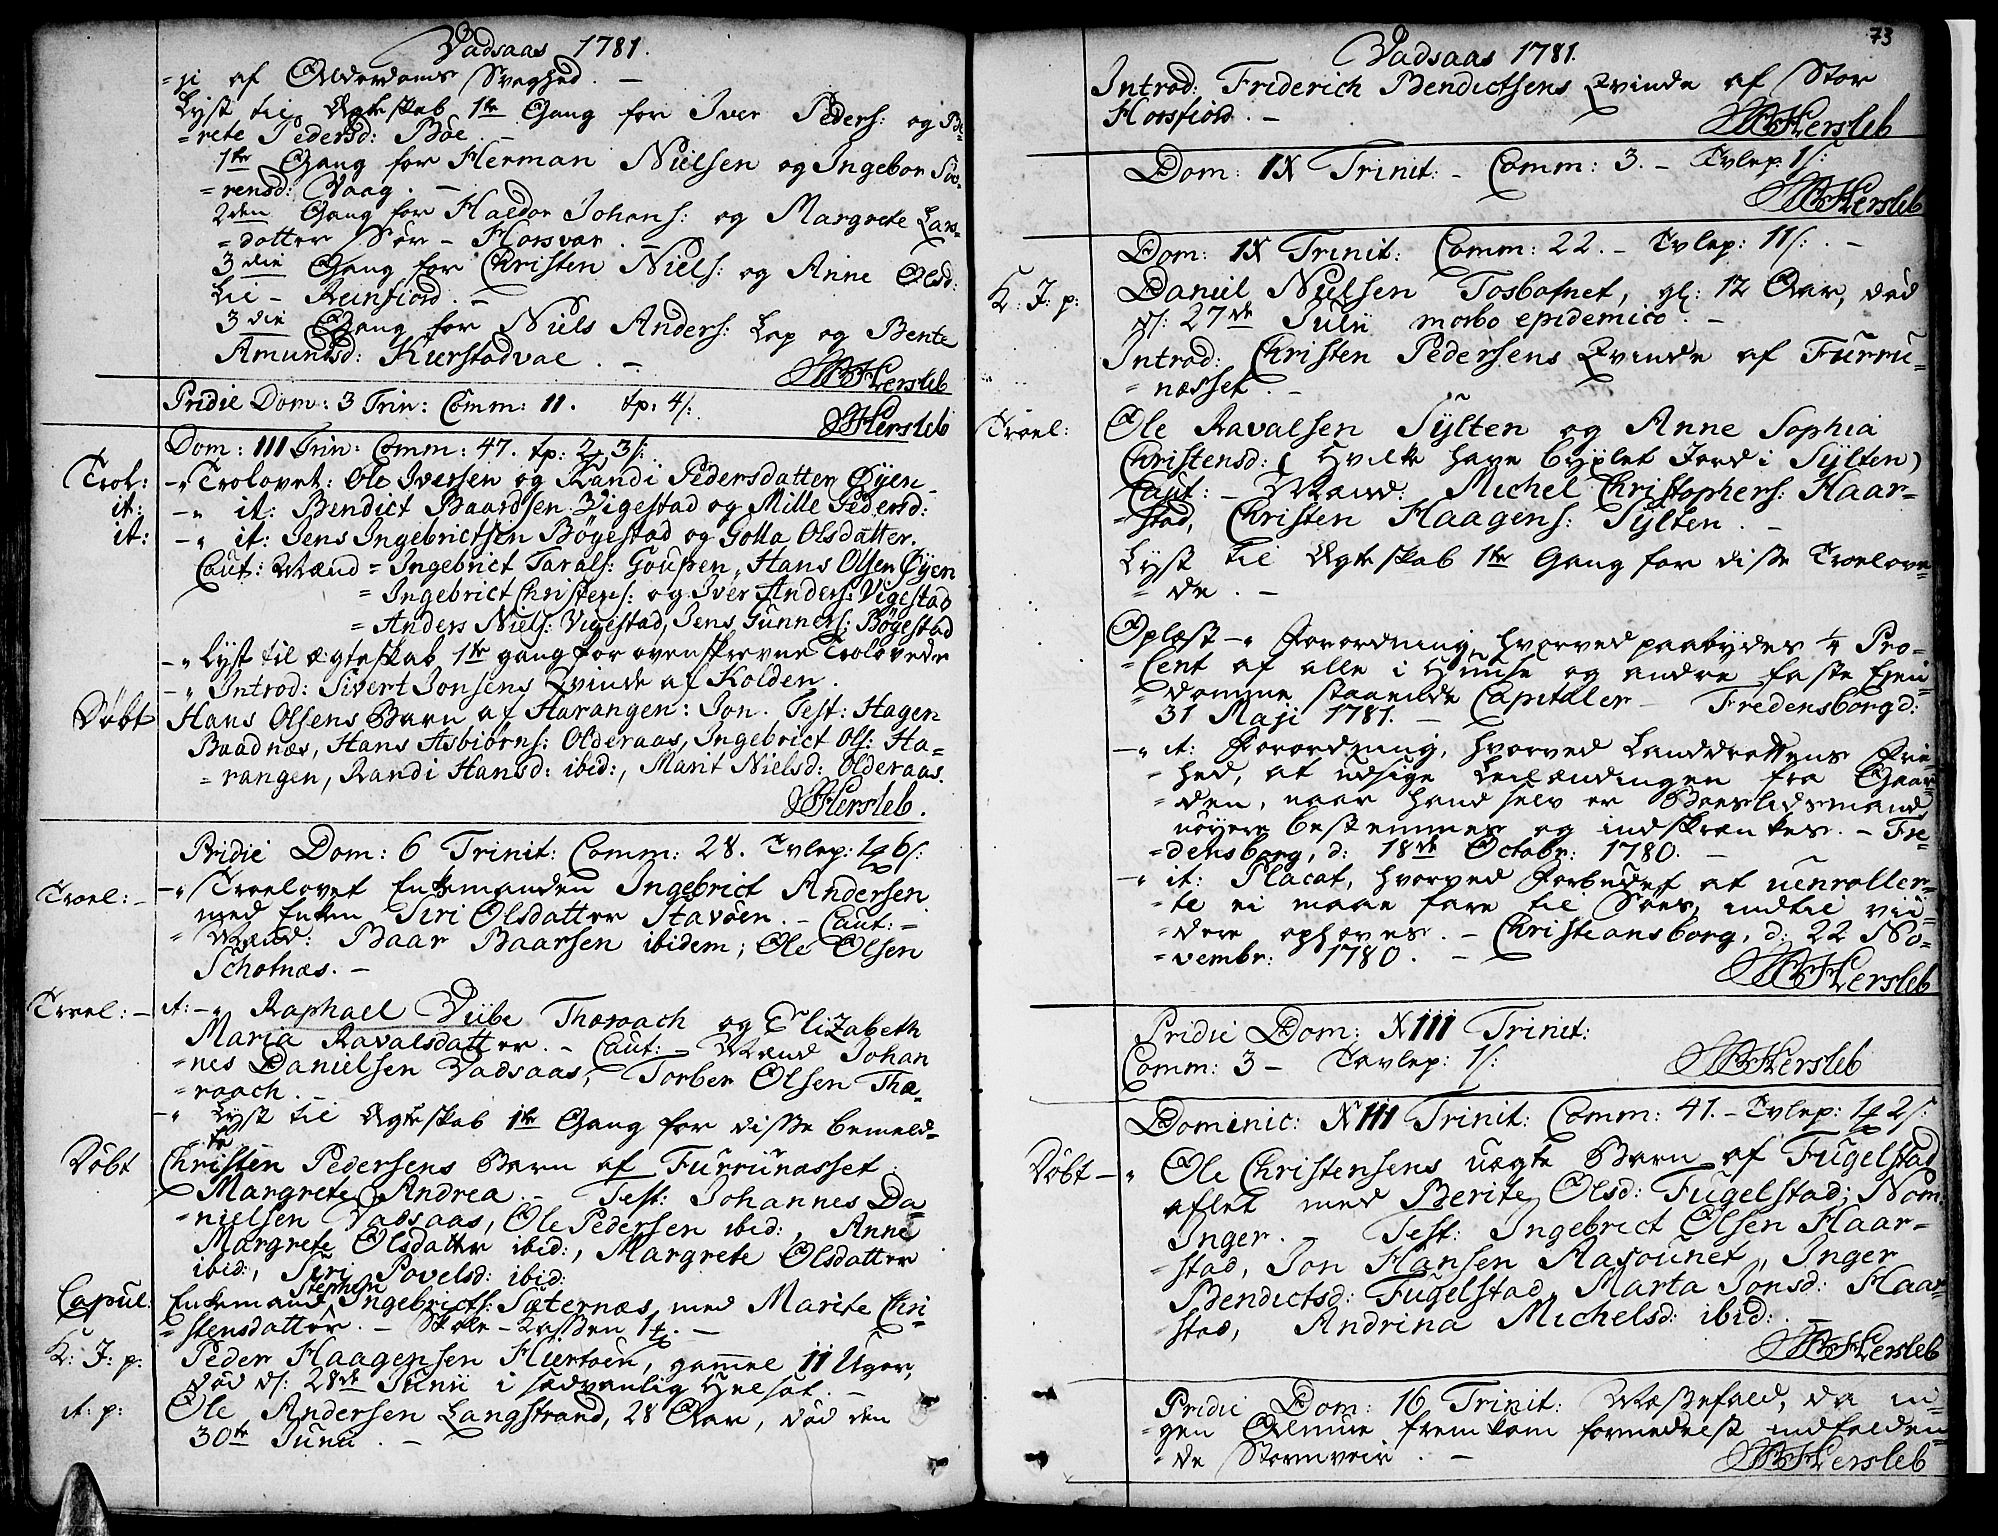 Vadsaas 1781.
=ji af Alderdoms Svaghed. –
Lyst til Ægteskab 1te Gang for Iver Peders: og Be=
=rete Pedersd: Böe. –
1te Gang for Herman Nielsen og Ingebor Sö=
=rensd: Vaag. –
2den Gang for Haldor Johans: og Margrete Lars=
=datter Sör – Horsvær. –
3die Gang for Christen Niels: og Anne Olsd:
Lie – Reinfiord. –
3die Gang for Niels Anders: Lap og Bente
Amundsd: Kierstadval. –
JBHersleb
Pridie Dom: 3 Trin: Comm: 11. tp: 4 s:
JBHersleb
Dom: III Trin: Comm: 47. tp: 2 3 s:
Trol: –" Trolovet: Ole Iversen og Randi Pedersdatter Öyen
it: –" it: Bendict Baardsen Vigestad og Mille Pedersd:
it: –" it: Jens Ingebrictsen Bögestad og Golla Olsdatter.
Caut: Mænd = Ingebrict Tarals: Goupen, Hans Olsen Öyen
= Ingebrict Christens: og Iver Anders: Vigestad
= Anders Niels: Vigestad, Jens Gunners: Bögestad
–" Lyst til ægteskab 1te gang for ovenskrevne Trolovede
–" Introd: Sivert Jonsens Qvinde af Kolden.
Döbt Hans Olsens Barn af Harangen: Jon. Test: Hagen
Baadnæs, Hans Asbiörns: Olderaas, Ingebrict Ols: Ha=
=rangen, Randi Hansd: ibid:, Marit Nielsd: Olderaas.
JBHersleb.
Pridie Dom: 6 Trinit: Comm: 28. Tvlep: 1 6 s:
Troel: – –" Troelovet Enkemanden Ingebrict Andersen
med Enken Siri Olsdatter Stavöen. – Caut: –
= Mænd: Baar Baarsen ibidem; Ole Olsen
Schotnæs. –
Troel: – it: –" Raphael Viibe Thæraach og Elizabeth
Maria Ravalsdatter. – Caut: – Mænd Johan
=nes Danielsen Vadsaas, Torber Olsen Thæ=
=raach. –
–" Lyst til Ægteskab 1te Gang for disse bemeld=
te
Döbt Christen Pedersens Barn af Furrunæsset:
Margrete Andrea. – Test: Johannes Da=
=nielsen Vadsaas, Ole Pedersen ibid:, Anne
Margrete Olsdatter ibid:, Margrete Olsdatter
ibid:, Siri Povelsd: ibid:
Stephen
Copul: Enkemand Ingebricts: Sæternæs, med Marite Chri=
=stensdatter. – Skole-Kassen 1. –
K: J: p: Peder Haagensen Hiertöen, gammel 11 Uger,
död d: 28de Junii i sædvanlig Helsot. –
it: p: Ole Andersen Langstrand, 28 Aar, död den
30te Junii. –
73
Vadsaas 1781.
Introd: Friderich Bendictsens Qvinde af Stor
Horsfiord. –
JBHersleb
Dom: IX Trinit: – Comm: 3. – Tvlep 1 s:
JBHersleb
Dom: IX Trinit: Comm: 22. – Tvlep: 11 s: –
K: J: p: Daniel Nielsen Tosbotnet, gl: 12 Aar, död
d: 27de Julii morbo epidemico. –
Introd: Christen Pedersens Qvinde af Furru=
=næsset. –
Troel: Ole Ravalsen Sylten og Anne Sophia
Christensd: (Hvilke have byxlet Jord i Sylten)
Caut: – Mænd: Michel Christophers: Haar=
=stad, Christen Haagens: Sylten. –
Lyst til Ægteskab 1te Gang for disse Troelove=
=de. –
Oplæst –" Forordning, hvorved paabydes 1/4 Pro=
=Cent af alle i Huuse og andre faste Eien=
=domme staaende Capitaler – Fredensborg d:
31 Maji 1781. –
–" it: Forordning, hvorved Landdrottens Fri=
=hed, at udsige Leilændingen fra Gaar=
=den, naar hand selv er Boeslidsmand
nöyere bestemmes og indskrænkes. – Fre=
=densborg, d: 18de Octobr: 1780. –
–" it: Placat, hvorved Forbudet at uenroller=
=te ei maae fare til Söes, indtil vii=
=dere ophæves. – Christiansborg, d: 22 No=
=vembr: 1780. –
JBHersleb
Pridie Dom: XIII Trinit:
Comm: 3 – Tavlep: 1 s:
JBHersleb
Dominic: XIII Trinit: Comm: 41. – Tvlep: 1 2 s:
Döbt –" Ole Christensens uægte Barn af Fugelstad
aflet med Berite Olsd: Fugelstad; Nom:
Inger. – Test: Ingebrict Olsen Haar=
=stad, Jon Hansen Aasounet, Inger
Bendictsd: Fugelstad, Marta Jonsd: Haar=
=stad, Andrina Michelsd: ibid: –
JBHersleb
Pridie Dom: 16 Trinit: Messefald, da in=
=gen Almue fremkom formedelst indfalden=
=de Stormveir. –
JBHersleb